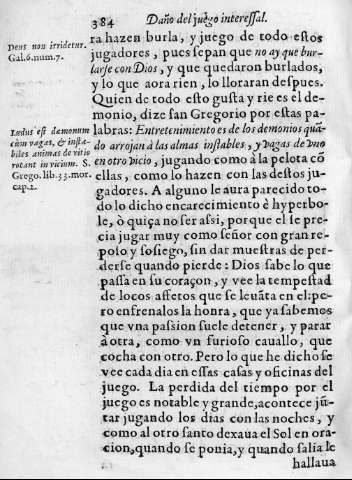 384 Daño del juego interessal.
Deus non irridetur.
Gal.6.num.7.
Lædus est dæmonum
cùm vagas, & insta-
biles animas de vitio
rotant in vicium. S.
Grego. lib.33.mor.
cap.2.
ra hazen burla, y juego de todo estos
jugadores, pues sepan que no ay que bur-
larse con Dios, y que quedaron burlados,
y lo que aora rien, lo lloraràn despues.
Quien de todo esto gusta y rie es el de-
monio, dize san Gregorio por estas pa-
labras: Entretenimiento es de los demonios quã-
do arrojan à las almas instables, y vagas de vno
en otro vicio, jugando como à la pelota cõ
ellas, como lo hazen con las destos ju-
gadores. A alguno le aura parecido to-
do lo dicho encarecimiento è hyperbo-
le, ò quiça no ser assi, porque el se pre-
cia jugar muy como señor con gran re-
poso y sosiego, sin dar muestras de per-
derse quando pierde: Dios sabe lo que
passa en su coraçon, y vee la tempestad
de locos affetos que se leuãta en el: pe-
ro enfrenalos la honra, que ya sabemos
que vna passion suele detener, y parar
à otra, como vn furioso cauallo, que
cocha con otro. Pero lo que he dicho se
vee cada dia en essas casas y oficinas del
juego. La perdida del tiempo por el
juego es notable y grande, acontece jũ-
tar jugando los dias con las noches, y
como al otro santo dexaua el Sol en ora-
cion, quando se ponia, y quando salia le
hallaua